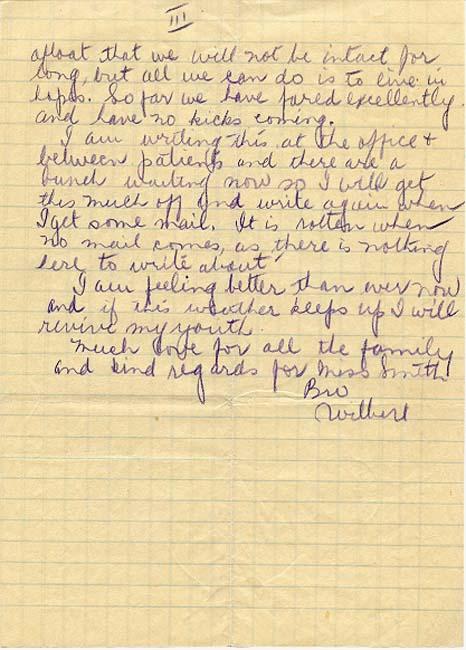 III
afloat that we will not be intact for
long, but all we can do is to live in
hopes. So far we have fared excellently
and have no kicks coming.
I am writing this at the office +
between patients and there are a
bunch waiting now so I will get
this much off and write again when
I get some mail. It is rotten when
no mail comes, as there is nothing
here to write about.
I am feeling better than ever now
and if this weather keeps up I will
revive my youth.
Much love for all the family
and kind regards for Miss Smith
Bro
Wilbert